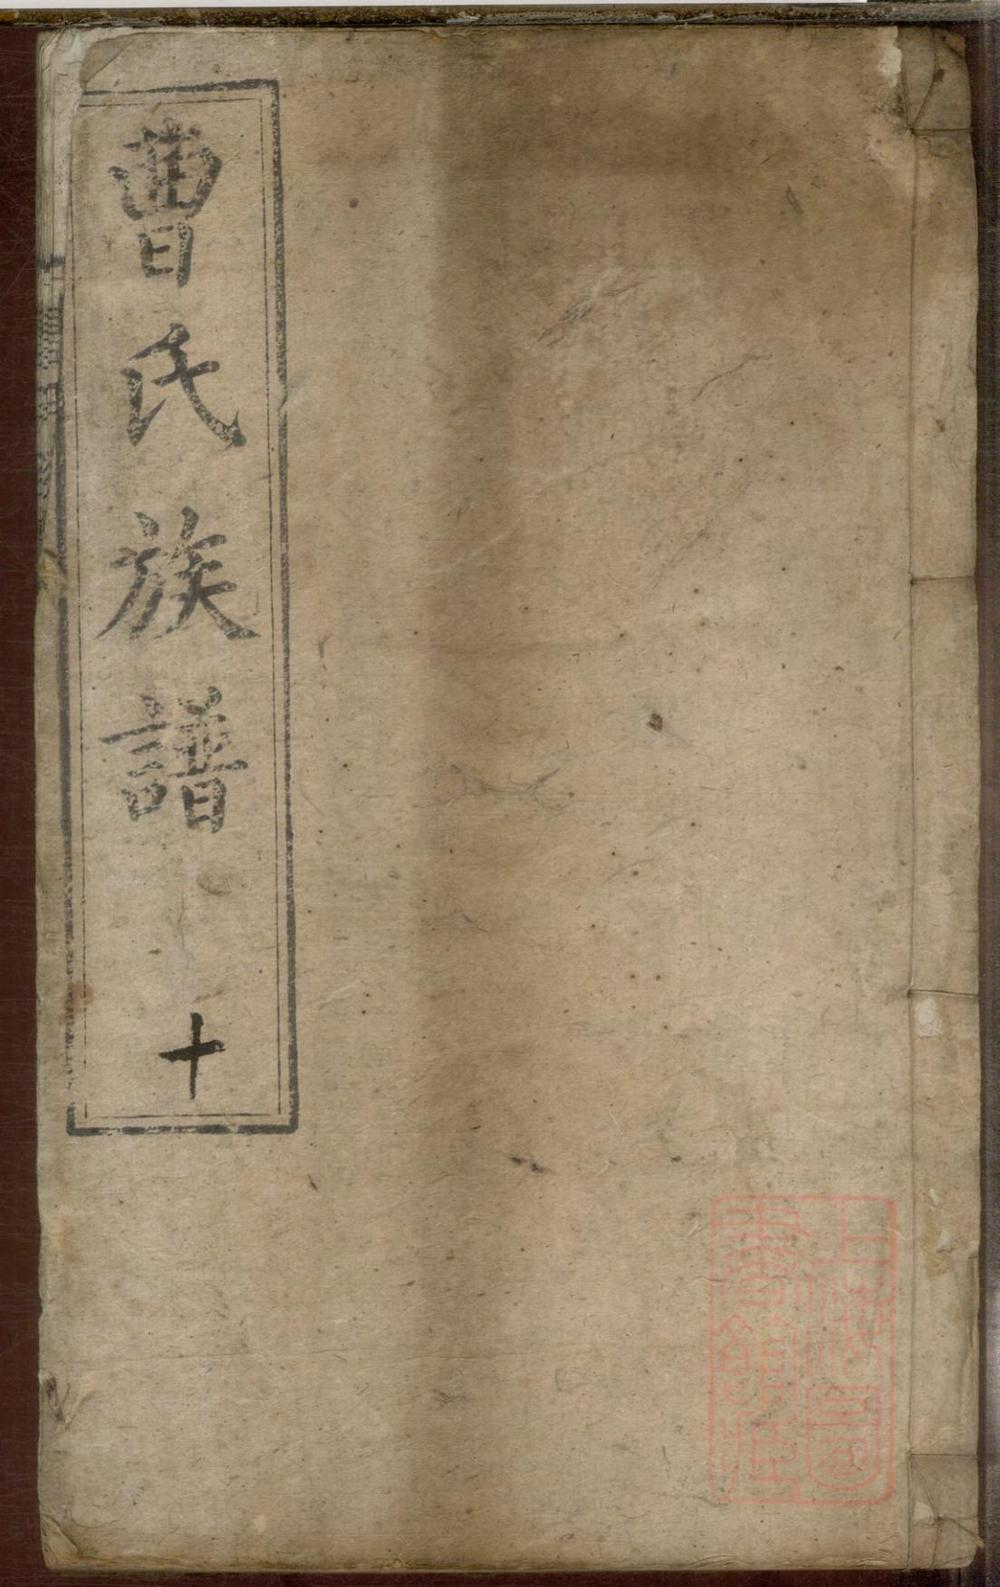 曹氏族譜
十
上海圖
書館藏